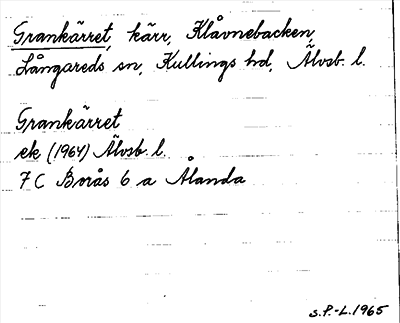 Grankärret, kärr, Klåvnebacken,
Långareds sn, Kullings hd, Älvsb. l.
Grankärret
ek (1964) Älvsb. l.
7 C Borås 6 a Ålanda
S.P.-L. 1965